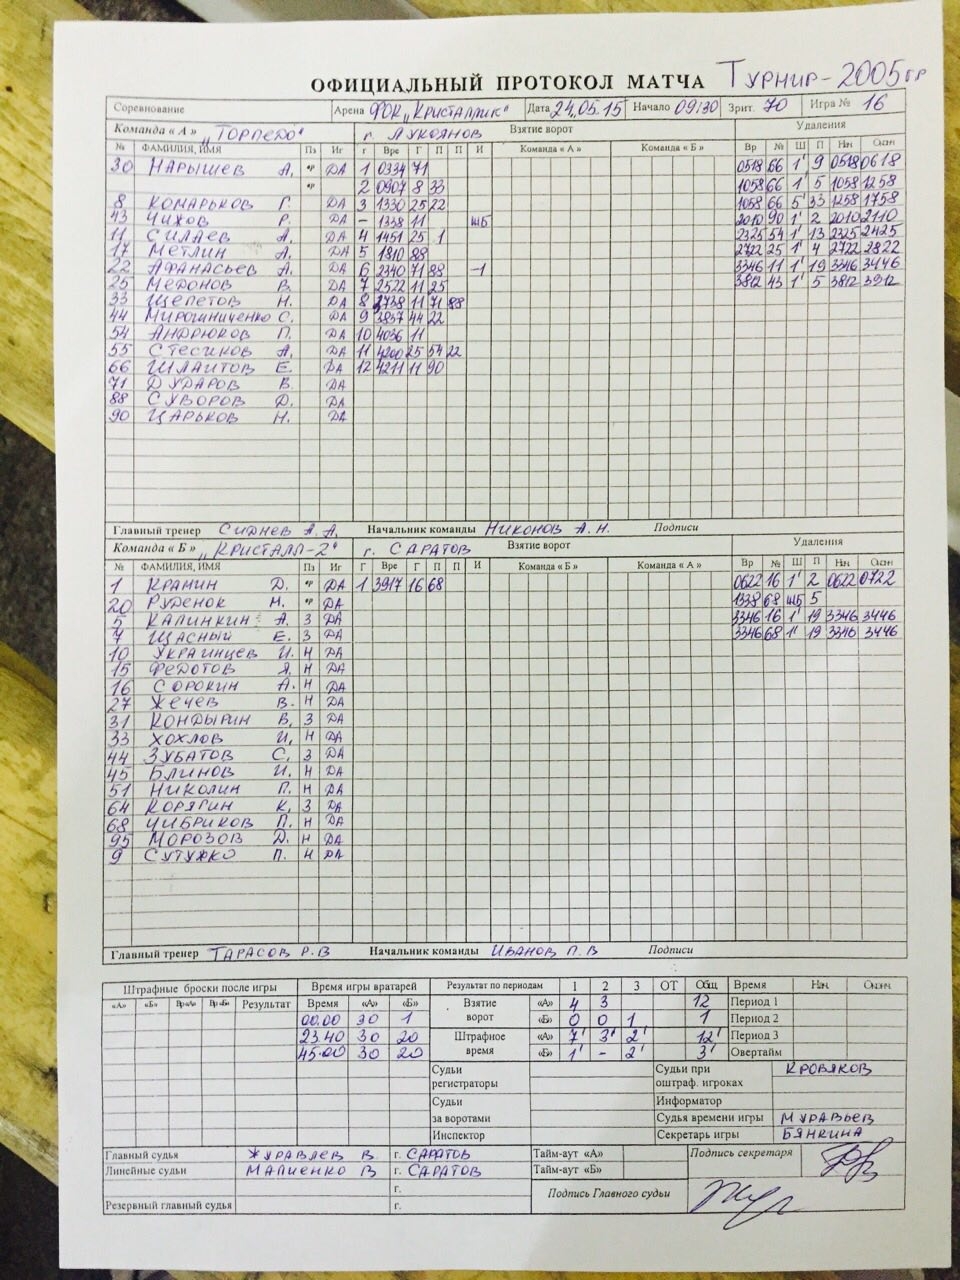 ОФИЦИАЛЬНЫЙ ПРОТОКОЛ МАТЧА Турнир-2005 г.р
Соревнование Арена ФОК „Кристаллик“ Дата 24.05.15 Начало 09:30 Зрит. 70 Игра № 16
Команда «А» „Торпедо“ г. Лукоянов Взятие ворот Удаления
№ ФАМИЛИЯ, ИМЯ Пз Иг г Вре Г П П И Команда «А» Команда «Б» Вр № Ш П Нач Оконч
30 Нарышев А. вр ДА 1 0334 71 0518 66 1' 9 0518 0618
вр 2 0907 8 33 1058 66 1' 5 1058 1258
8 Комарьков Г. ДА 3 1330 25 22 1058 66 5' 33 1258 1758
43 Чихов Р. ДА - 1338 11 шб 2010 90 1' 2 2010 2110
11 Силаев А. ДА 4 1451 25 1 2325 54 1' 13 2325 2425
17 Метлин А. ДА 5 1810 88 2722 25 1' 4 2722 2822
22 Афанасьев А. ДА 6 2340 71 88 -1 3346 11 1' 19 3346 3446
25 Мефонов В. ДА 7 2522 11 25 3812 43 1' 5 3812 3912
33 Щепетов Н. ДА 8 2738 11 71 88
44 Мирошниченко С. ДА 9 3837 44 22
54 Андрюков П. ДА 10 4036 11
55 Стесиков А. ДА 11 4200 25 54 22
66 Шлаитов Е. ДА 12 4211 11 90
71 Дударов В. ДА
88 Суворов Д. ДА
90 Царьков Н. ДА
Главный тренер Сиднев А.А. Начальник команды Никонов А.Н. Подписи
Команда «Б» „Кристалл-2“ г. Саратов Взятие ворот Удаления
№ ФАМИЛИЯ, ИМЯ Пз Иг Г Вре Г П П И Команда «Б» Команда «А» Вр № Ш П Нач Оконч
1 Кранин Д. вр ДА 1 3917 16 68 0622 16 1' 2 0622 0722
20 Руденок М. вр ДА 1338 68 шб 5
5 Калинкин А. З ДА 3346 16 1' 19 3346 3446
7 Щасный Е. З ДА 3346 68 1' 19 3346 3446
10 Украинцев И. Н ДА
15 Федотов Я. Н ДА
16 Сорокин А. Н ДА
27 Жечев В. Н ДА
31 Кондырин В. З ДА
33 Хохлов И. Н ДА
44 Зубатов С. З ДА
45 Блинов И. Н ДА
51 Николин П. Н ДА
64 Корягин К. З ДА
68 Чибриков П. Н ДА
95 Морозов Д. Н ДА
9 Сутужко П. Н ДА
Главный тренер Тарасов Р.В Начальник команды Иванов П.В Подписи
Штрафные броски после игры Время игры вратарей Результат по периодам 1 2 3 ОТ Общ Время Нач Оконч
«А» «Б» Вр«А» Вр«Б» Результат Время «А» «Б» Взятие ворот «А» 4 3 12 Период 1
00.00 30 1 «Б» 0 0 1 1 Период 2
23.40 30 20 Штрафное время «А» 7' 3' 2' 12' Период 3
45.00 30 20 «Б» 1' - 2' 3' Овертайм
Судьи регистраторы Судьи при оштраф. игроках Кровяков
Судьи за воротами Информатор
Судья времени игры Муравьев
Инспектор Секретарь игры Бянкина
Главный судья Журавлев В г. Саратов Тайм-аут «А» Подпись секретаря
Линейные судьи Малиенко В г. Саратов Тайм-аут «Б»
г. Подпись Главного судьи
Резервный главный судья г.